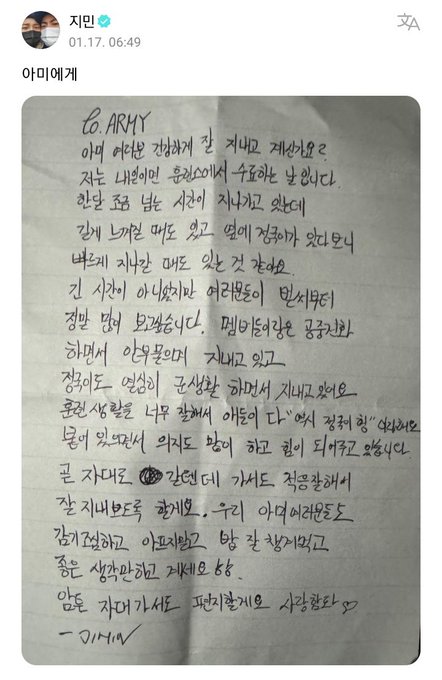 지민
01.17. 06:49
아미에게
to. ARMY
아미 여러분 건강하게 잘 지내고 계신가요?
저는 내일이면 훈련소에서 수료하는 날입니다.
한달 조금 넘는 시간이 지나가고 있는데
길게 느껴질 때도 있고 옆에 정국이가 있다보니
빠르게 지나갈 때도 있는 것 같아요.
긴 시간이 아니었지만 여러분들이 벌써부터
정말 많이 보고싶습니다. 멤버들이랑은 공중전화
하면서 안부물으며 지내고 있고
정국이도 열심히 군생활 하면서 지내고 있어요
훈련 생활을 너무 잘해서 애들이 다 "역시 정국이 형"
붙어 있으면서 의지도 많이 하고 힘이 되어주고 있습니다
곧 자대로 갈텐데 가서도 적응잘해서
잘 지내보도록 할게요. 우리 아미여러분들도
감기조심하고 아프지말고 밥 잘 챙겨먹고
좋은 생각만하고 계세요
암튼 자대가서도 편지할게요 사랑합니다
- JIMIN